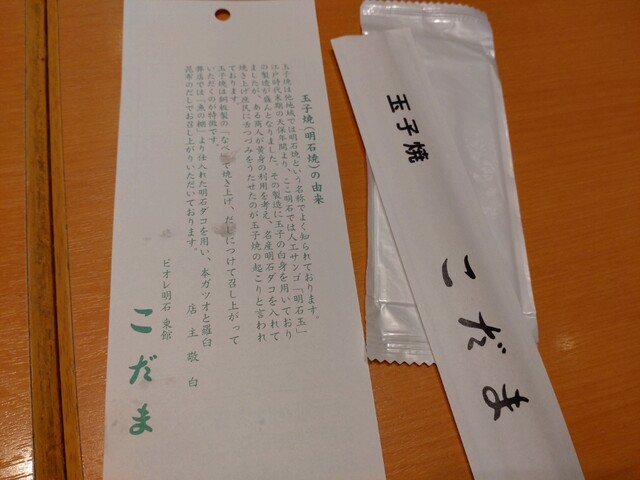 玉子焼(明石焼)の由来
玉子焼は他地域では明石焼という名称でよく知られております。
江戸時代末期の天保年間より、ここ明石では人工サンゴ「明石玉」
の製造が盛んとなりました。その製造に玉子の白身を用いており
ましたが、ある商人が黄身の利用を考え、名産明石ダコを入れて
焼き上げ庶民に舌つづみをうたせたのが玉子焼の起こりと言われ
ております。
玉子焼は銅板製の「なべ」で焼き上げ、だしにつけて召し上がって
いただくのが特徴です。
弊店では「魚の棚」より仕入れた明石ダコを用い、本ガツオと羅臼
昆布のだしでお召し上がりいただいております。
店主敬白
ピオレ明石 東館
こだま
玉子焼
こだま